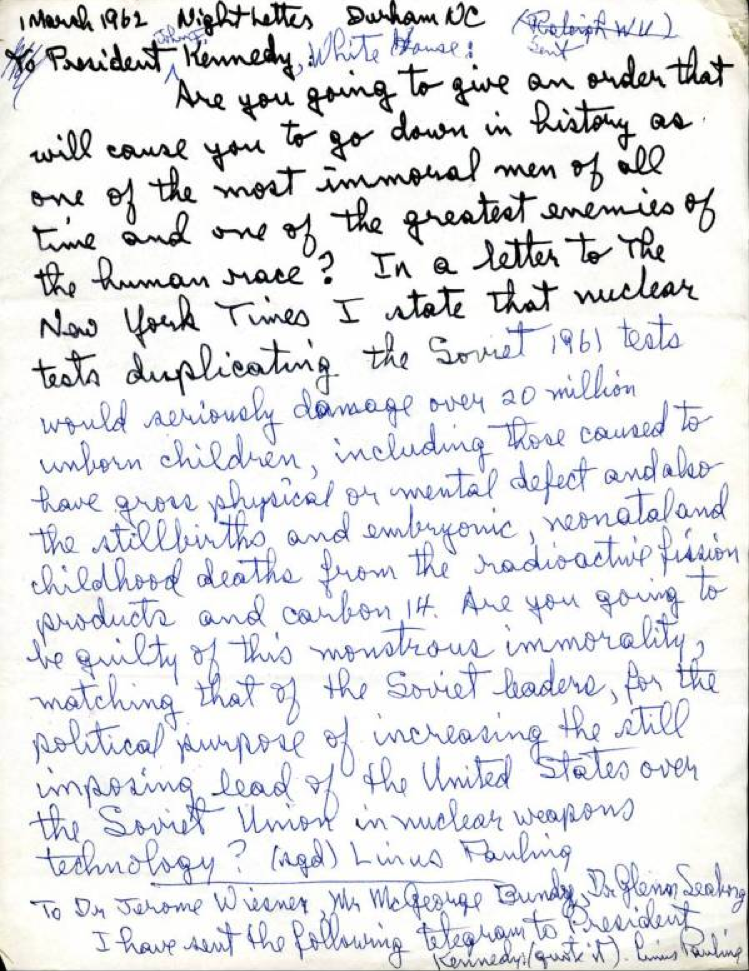 1 March 1962 Night Letter Durham NC (Raleigh WU)
Sent
To President John F. Kennedy, White House:
Are you going to give an order that
will cause you to go down in history as
one of the most immoral men of all
time and one of the greatest enemies of
the human race? In a letter to The
New York Times I state that nuclear
tests duplicating the Soviet 1961 tests
would seriously damage over 20 million
unborn children, including those caused to
have gross physical or mental defect and also
the stillbirths and embryonic, neonatal and
childhood deaths from the radioactive fission
products and carbon 14. Are you going to
be guilty of this monstrous immorality,
matching that of the Soviet leaders, for the
political purpose of increasing the still
imposing lead of the United States over
the Soviet Union in nuclear weapons
technology? (sgd) Linus Pauling
To Dr Jerome Wiesner, Mr McGeorge Bundy, Dr Glenn Seaborg
I have sent the following telegram to President
Kennedy: (quote it). Linus Pauling